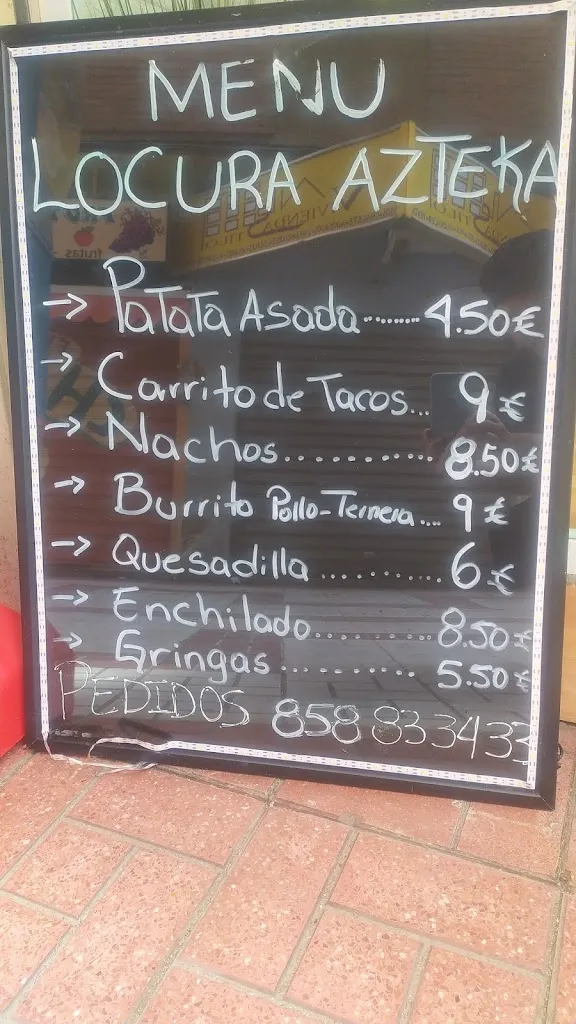 MENU
LOCURA AZTEKA
→ Patata Asada........ 4.50€
→ Carrito de Tacos... 9€
→ Nachos............ 8.50€
→ Burrito Pollo-Ternera.... 9€
→ Quesadilla.......... 6€
→ Enchilado.......... 8.50€
→ Gringas........... 5.50€
PEDIDOS 858 833433
frutas